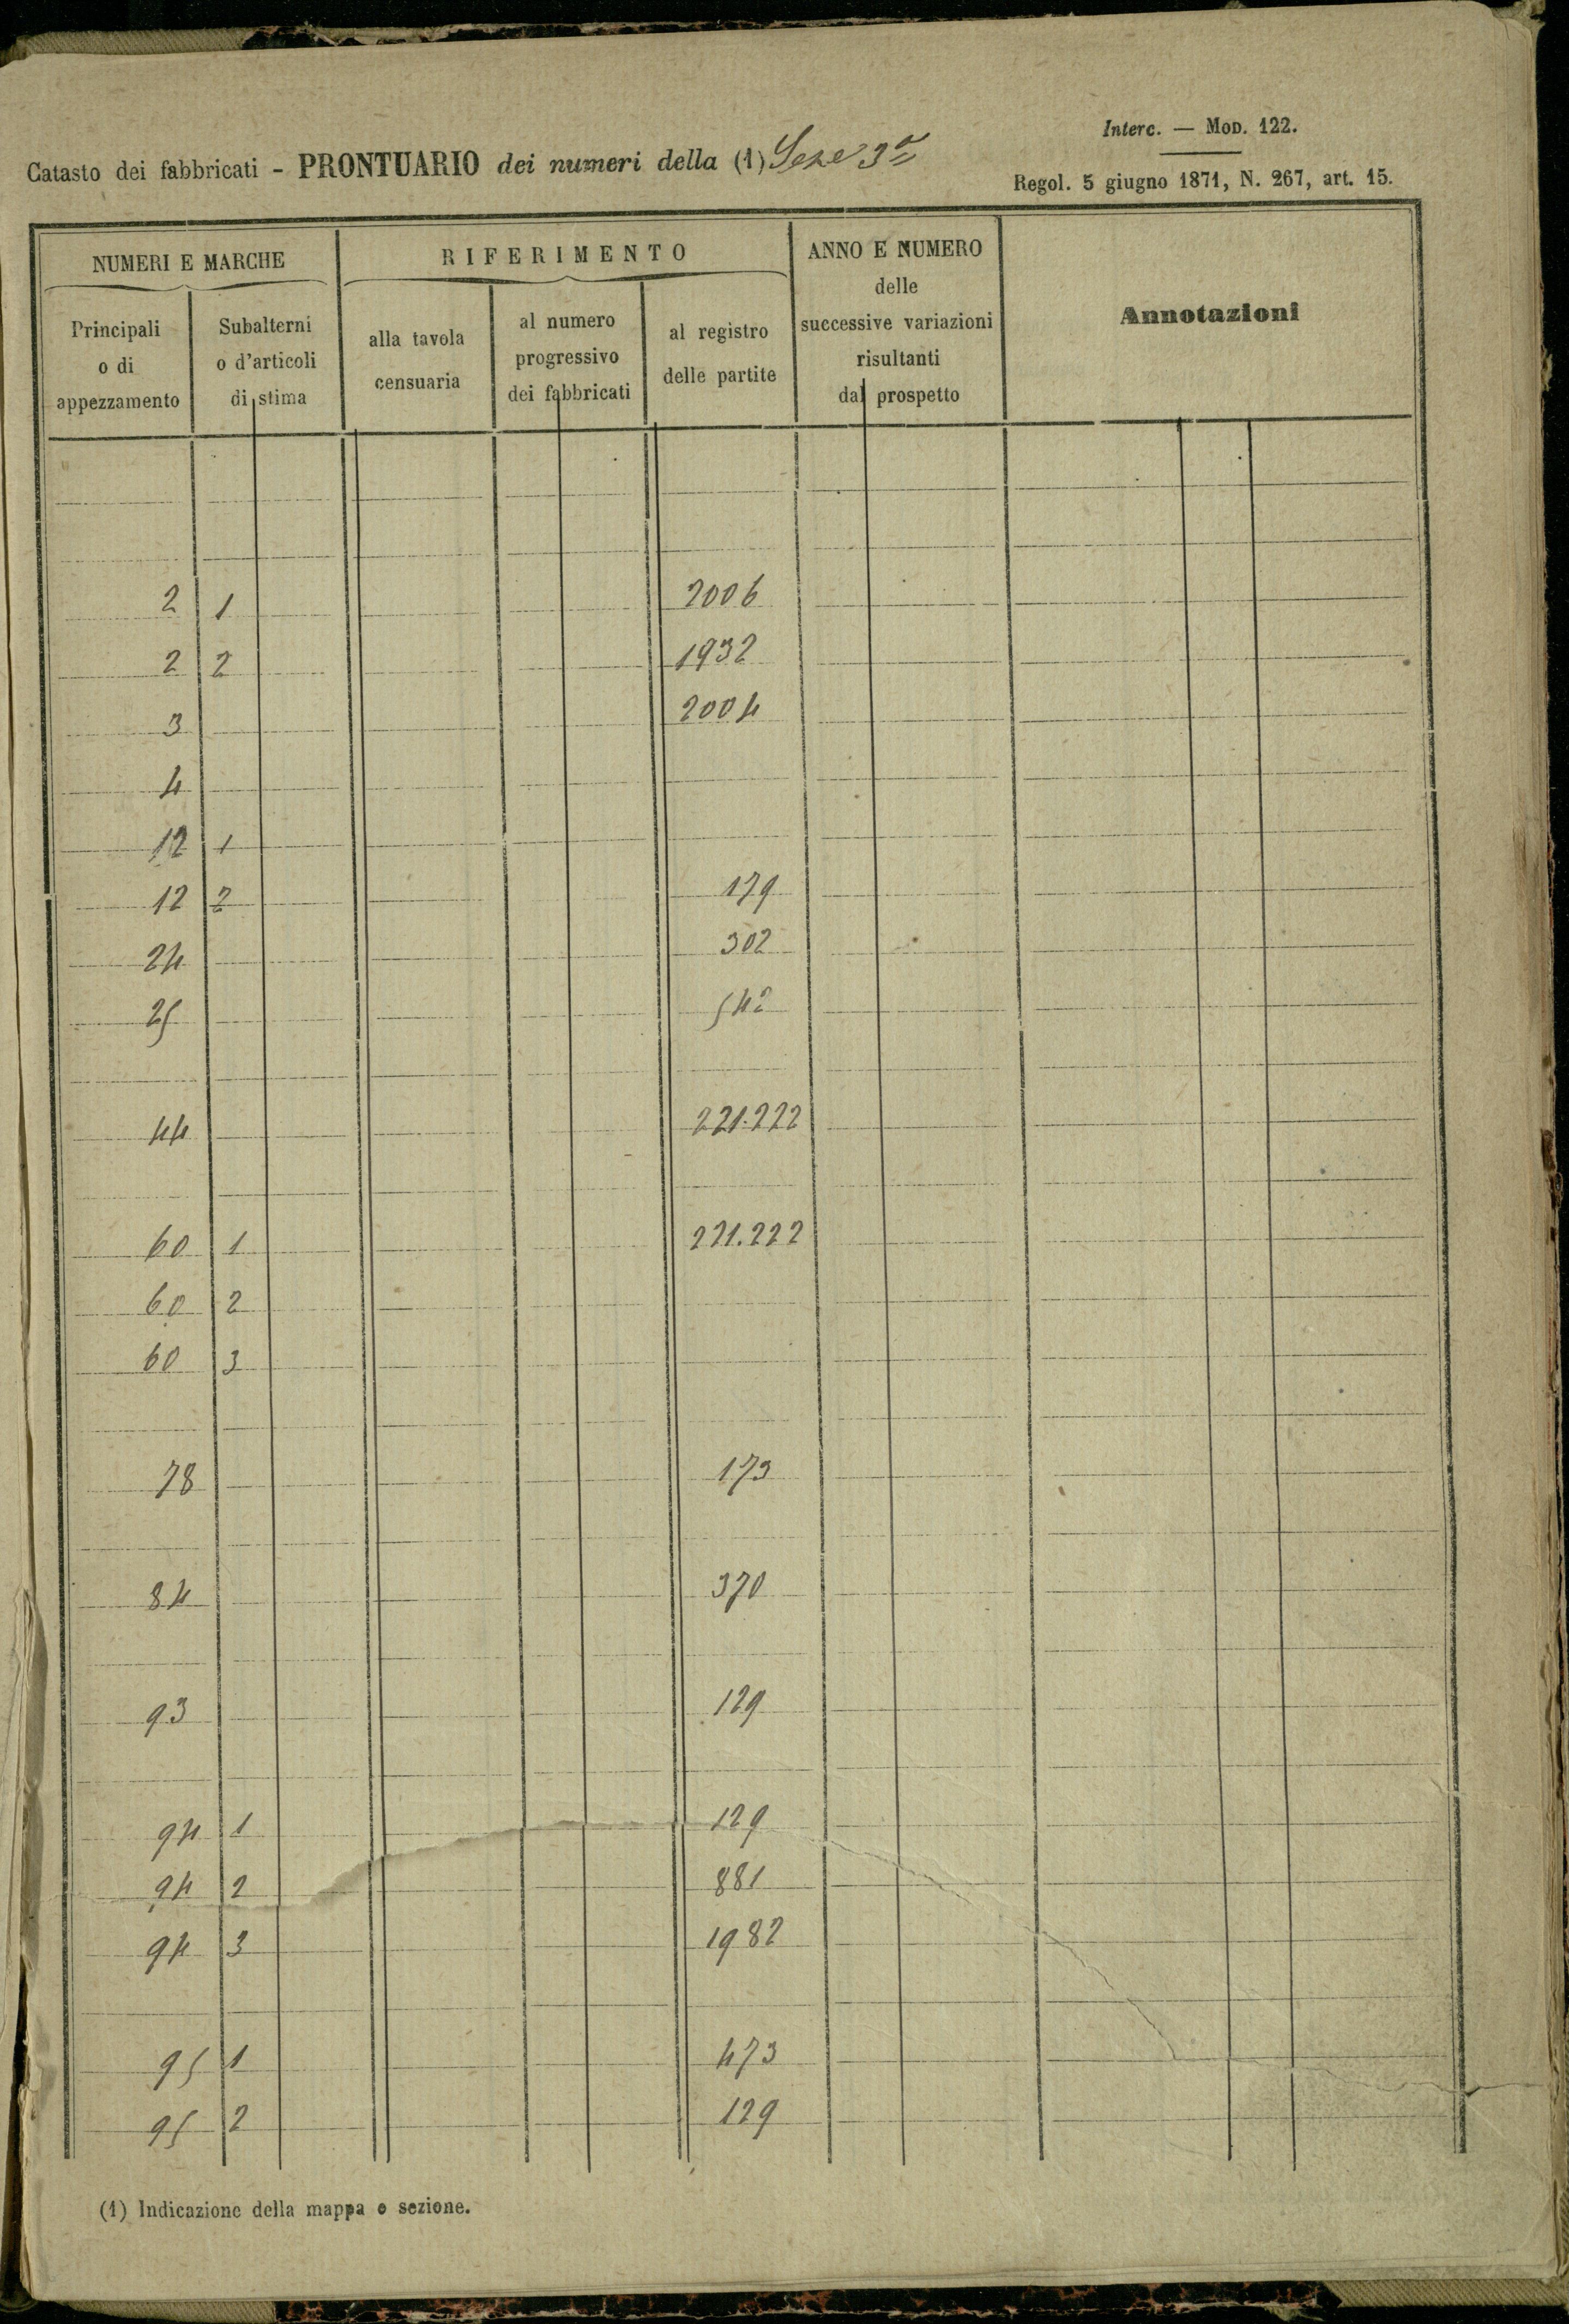 Interc. — MOD. 122.
Catasto dei fabbricati - PRONTUARIO dei numeri della (1) Seze 3a
Regol. 5 giugno 1871, N. 267, art. 15.
NUMERI E MARCHE
RIFERIMENTO
ANNO E NUMERO
delle
successive variazioni
risultanti
dal prospetto
Annotazioni
Principali
o di
appezzamento
Subalterni
o d'articoli
di stima
alla tavola
censuaria
al numero
progressivo
dei fabbricati
al registro
delle partite
2 1 2006
2 2 1932
3 2004
4
12 1
12 2 179
24 302
25 542
44 221.222
60 1 221.222
60 2
60 3
78 173
84 370
93 129
94 1 129
94 2 881
94 3 1982
95 1 473
95 2 129
(1) Indicazione della mappa o sezione.